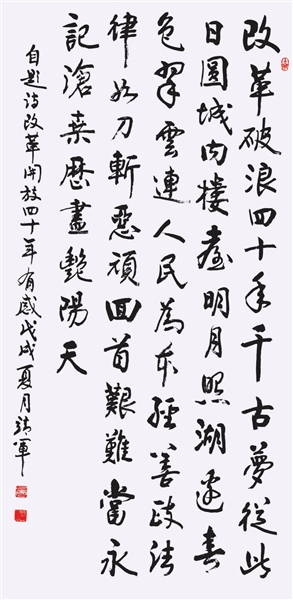 改革破浪四十年千古夢從此
日圓城內樓臺明月照湖邊春
色翠雲連人民為本經善政法
律如刀斬惡頑回首艱難當永
記滄桑歷盡艷陽天
自題詩改革開放四十年有感戊戌夏月軍